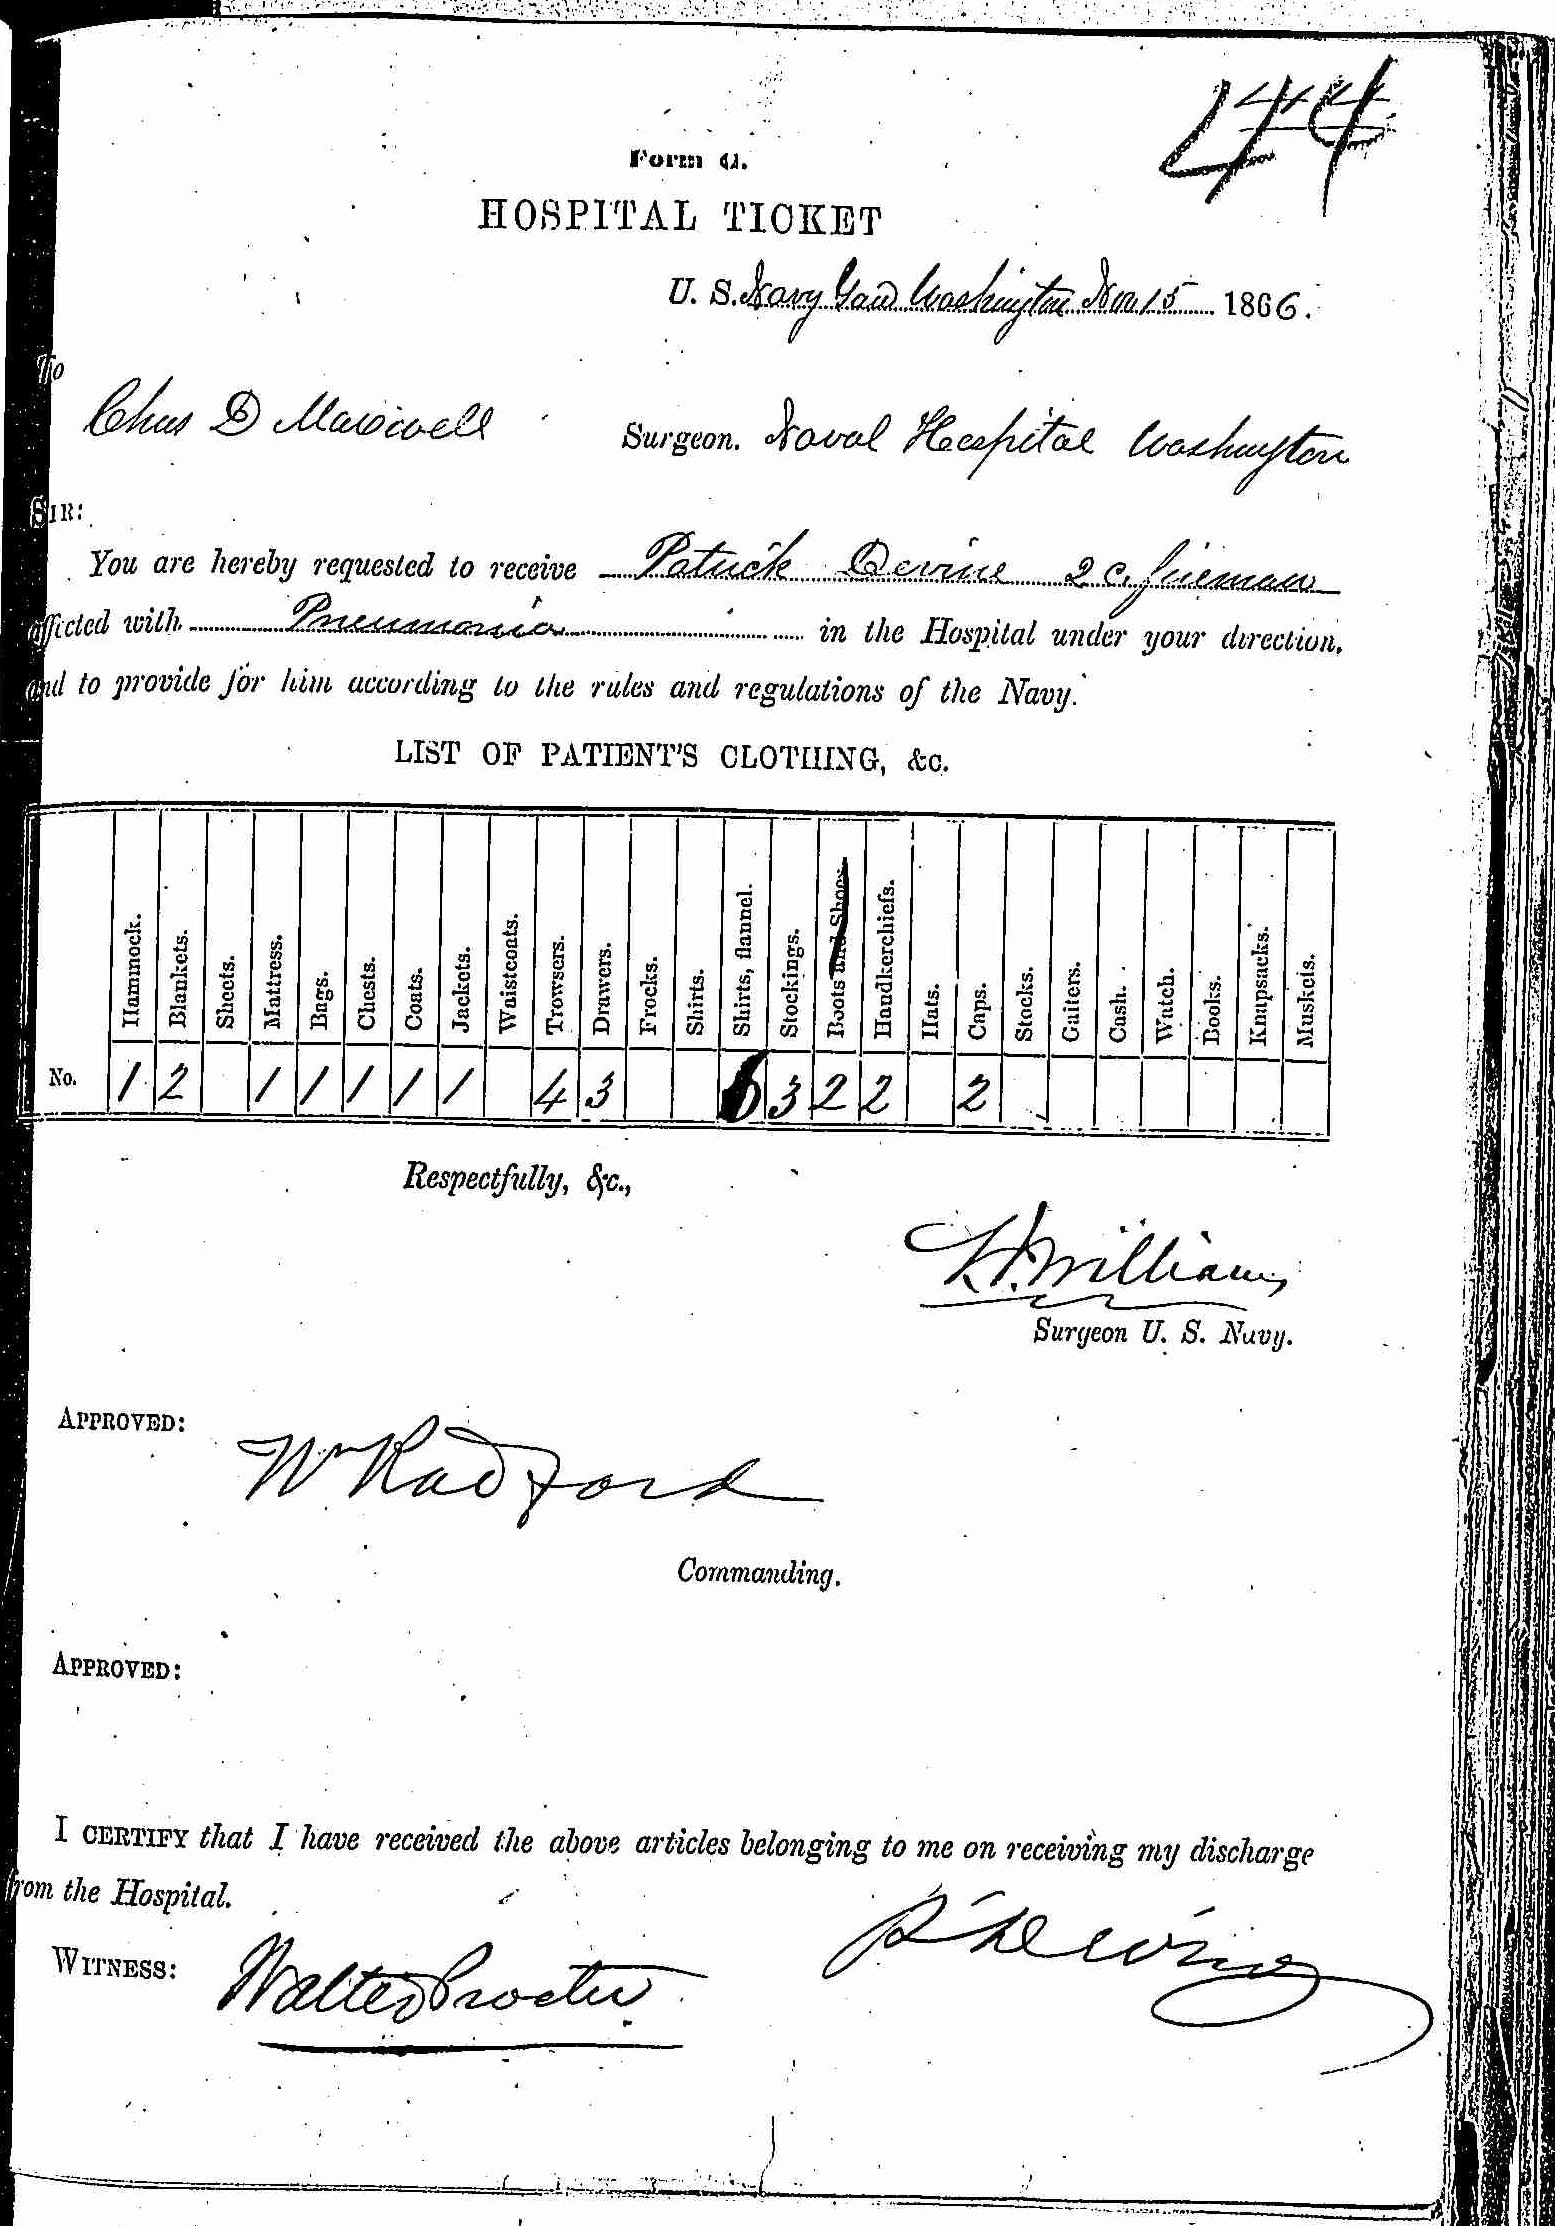 44
Form G.
HOSPITAL TICKET
U. S. Navy Yard Washington Nov. 15 1866.
To
Chas D Maxwell Surgeon. Naval Hospital Washington
SIR:
You are hereby requested to receive Patrick Devine 2 c. fireman
afflicted with Pneumonia in the Hospital under your direction,
and to provide for him according to the rules and regulations of the Navy.
LIST OF PATIENT'S CLOTHING, &c.
Hammock. Blankets. Sheets. Mattress. Bags. Chests. Coats. Jackets. Waistcoats. Trowsers. Drawers. Frocks. Shirts. Shirts, flannel. Stockings. Boots and Shoes. Handkerchiefs. Hats. Caps. Stocks. Gaiters. Cash. Watch. Books. Knapsacks. Muskets.
No. 1 2 1 1 1 1 1 4 3 6 3 2 2 2
Respectfully, &c.,
Williams
Surgeon U. S. Navy.
APPROVED:
Wm Radford
Commanding.
APPROVED:
I CERTIFY that I have received the above articles belonging to me on receiving my discharge
from the Hospital.
WITNESS: Walter Procter P Devine